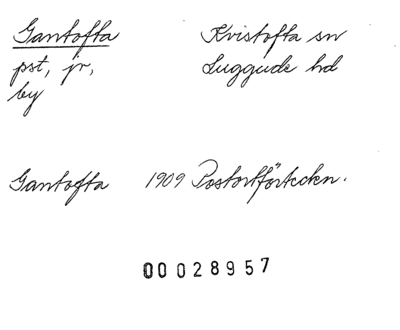 Gantofta Kvistofta sn
pst, jr, Luggude hd
by
Gantofta 1909 Postortförteckn.
00028957